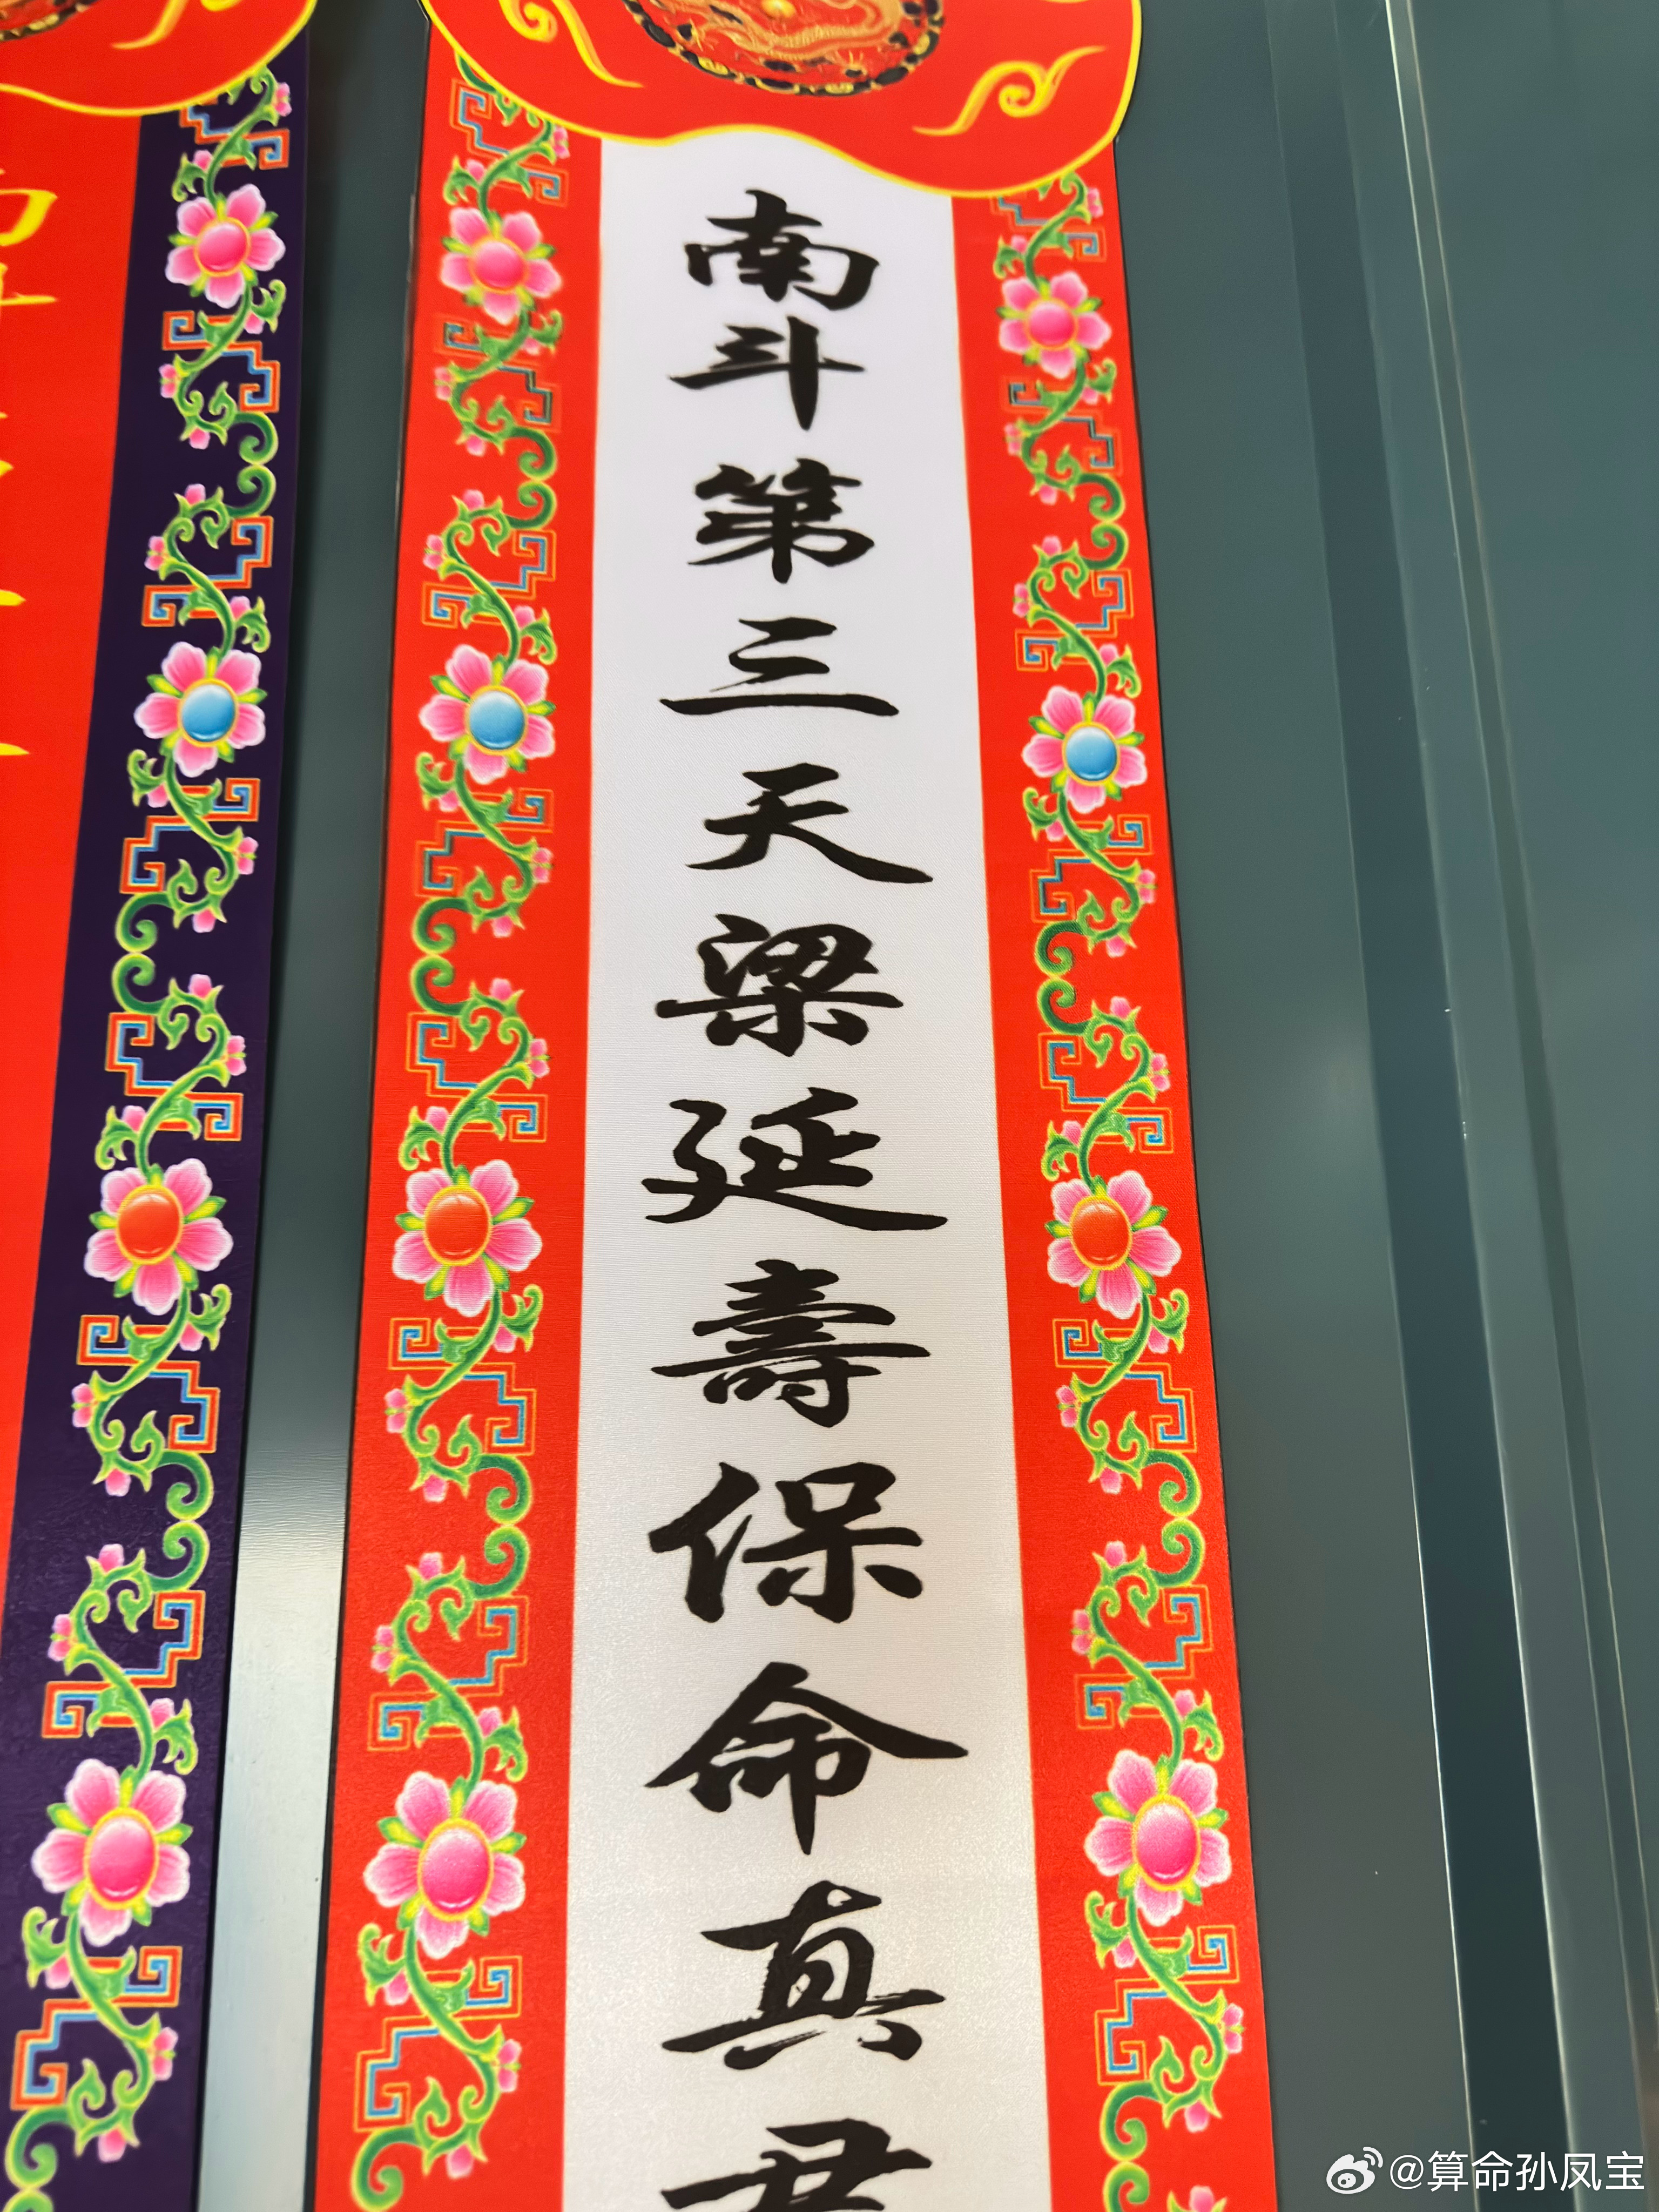 南斗第三天梁延壽保命真君
@算命孙凤宝